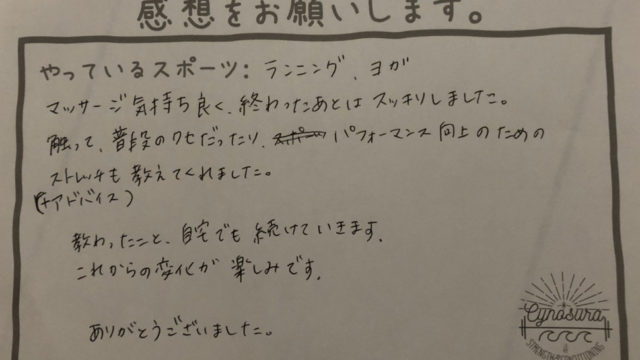 感想をお願いします。
やっているスポーツ: ランニング、ヨガ
マッサージ気持ち良く、終わったあとはスッキリしました。
触って、普段のクセだったり、スポーツ パフォーマンス向上のための
ストレッチも教えてくれました。
(+アドバイス)
教わったこと、自宅でも続けていきます。
これからの変化が楽しみです。
ありがとうございました。
Cynosura
STRENGTH&CONDITIONING